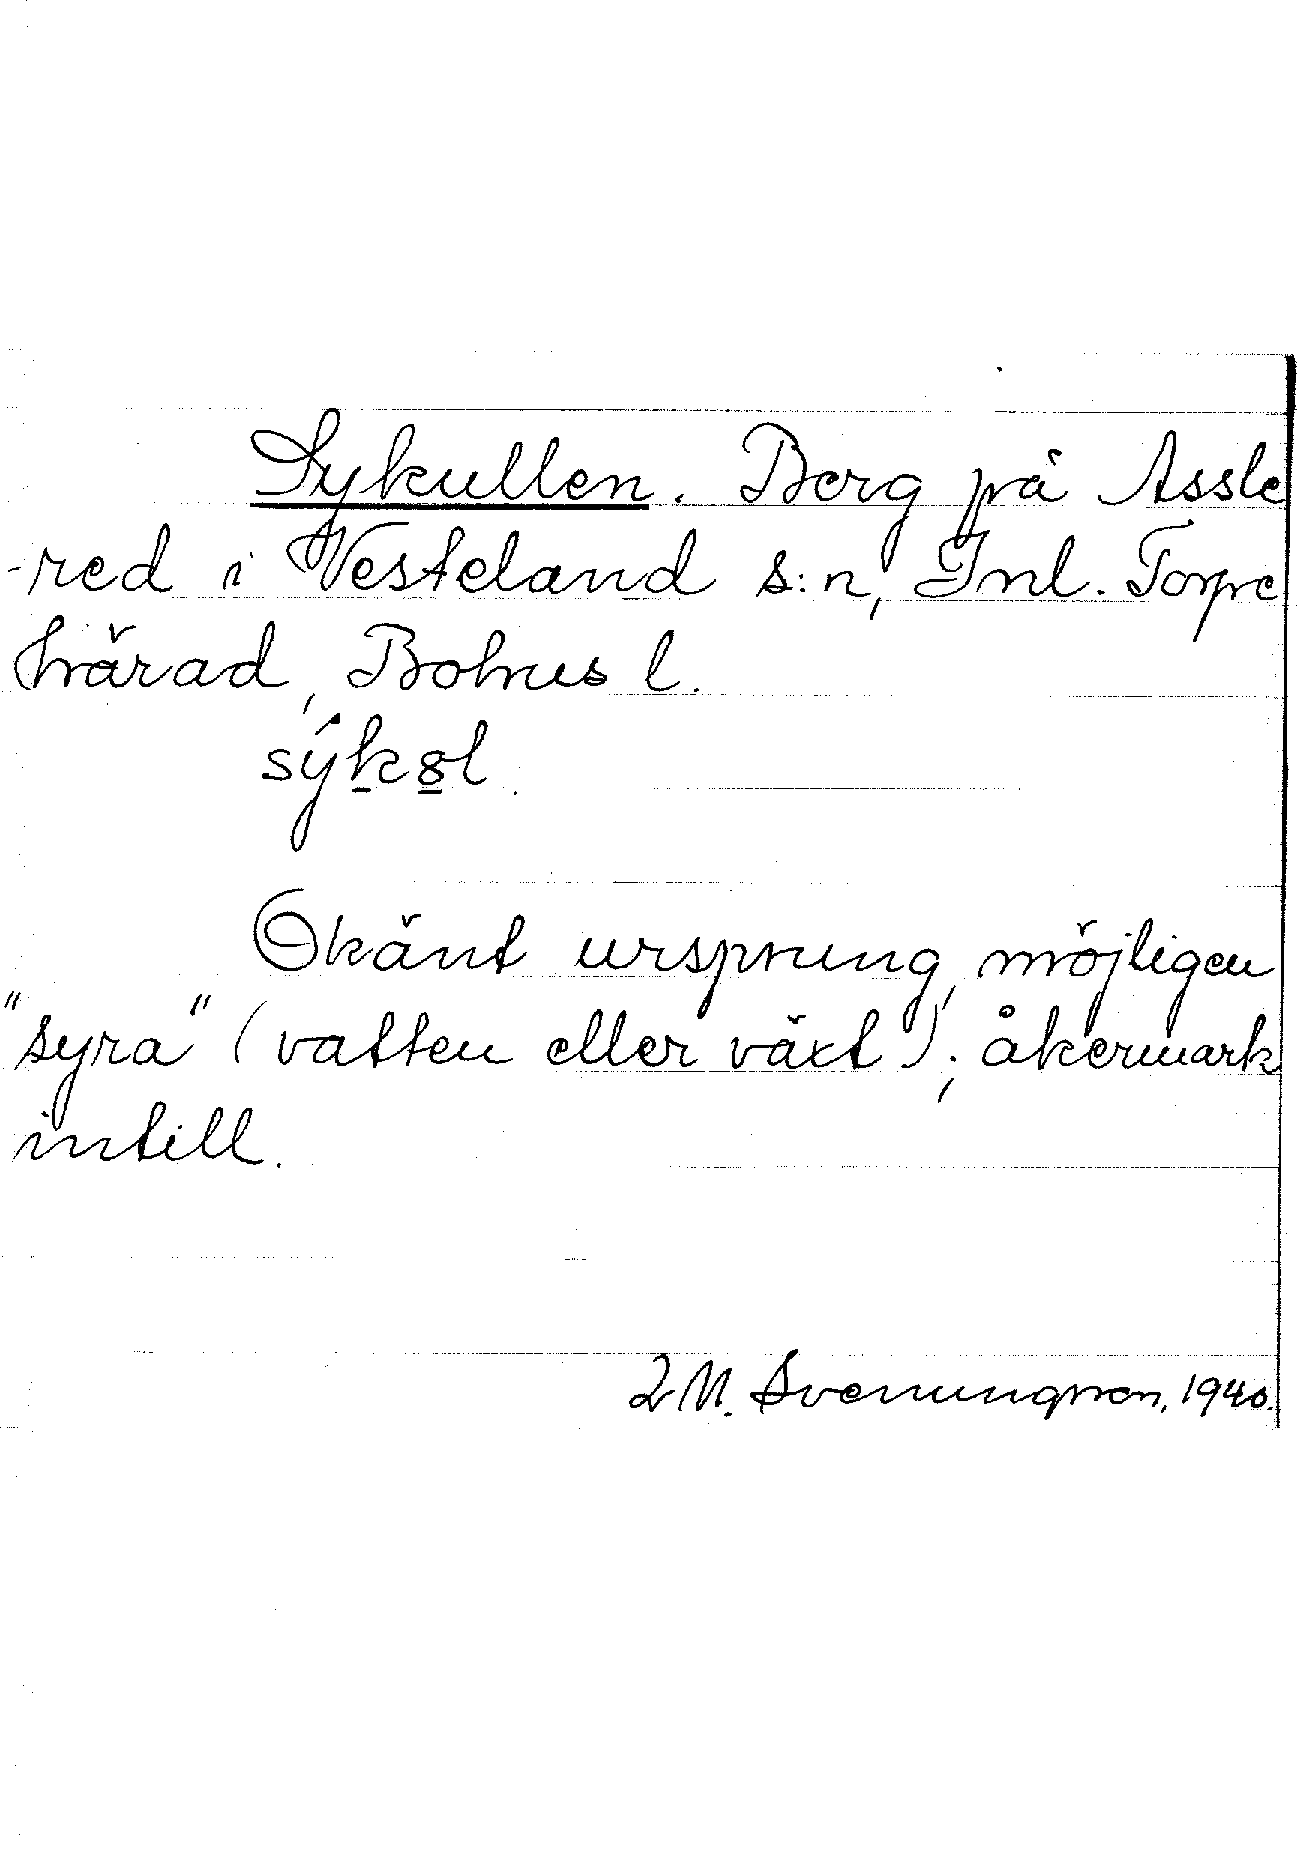 Sykullen. Berg på Assle
-red i Vesteland s:n, Inl. Torpe
härad, Bohus l.
sýkȣl.
Okänt ursprung, möjligen
"syra" (vatten eller växt); åkermark
intill.
J M. Svenungsson, 1940.